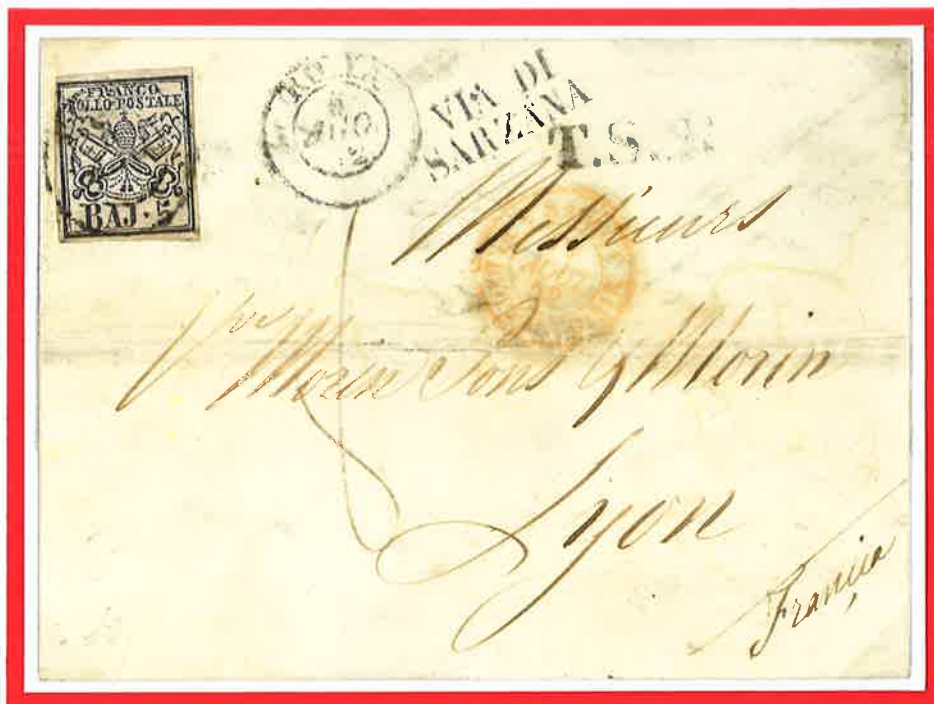 FRANCO
BOLLO POSTALE
BAJ·5
ROMA
VIA DI
SARZANA
T.S.
Messieurs
Morin Cons & Morin
Lyon
Francia